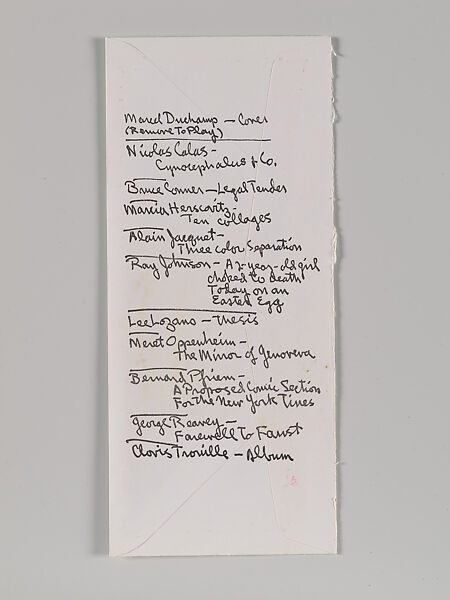 Marcel Duchamp — Cover
(Remove To Play)
Nicolas Calas —
Cynocephalus & Co.
Bruce Conner — Legal Tender
Marcia Herscovitz —
Ten collages
Alain Jacquet —
Three color Separation
Ray Johnson — A 2-year-old girl
choked to death
Today on an
Easter Egg
Lee Lozano — Thesis
Meret Oppenheim —
The Mirror of Genoveva
Bernard Pfriem —
A Proposed Comic Section
For the New York Times
George Reavey —
Farewell To Faust
Clovis Trouille — Album